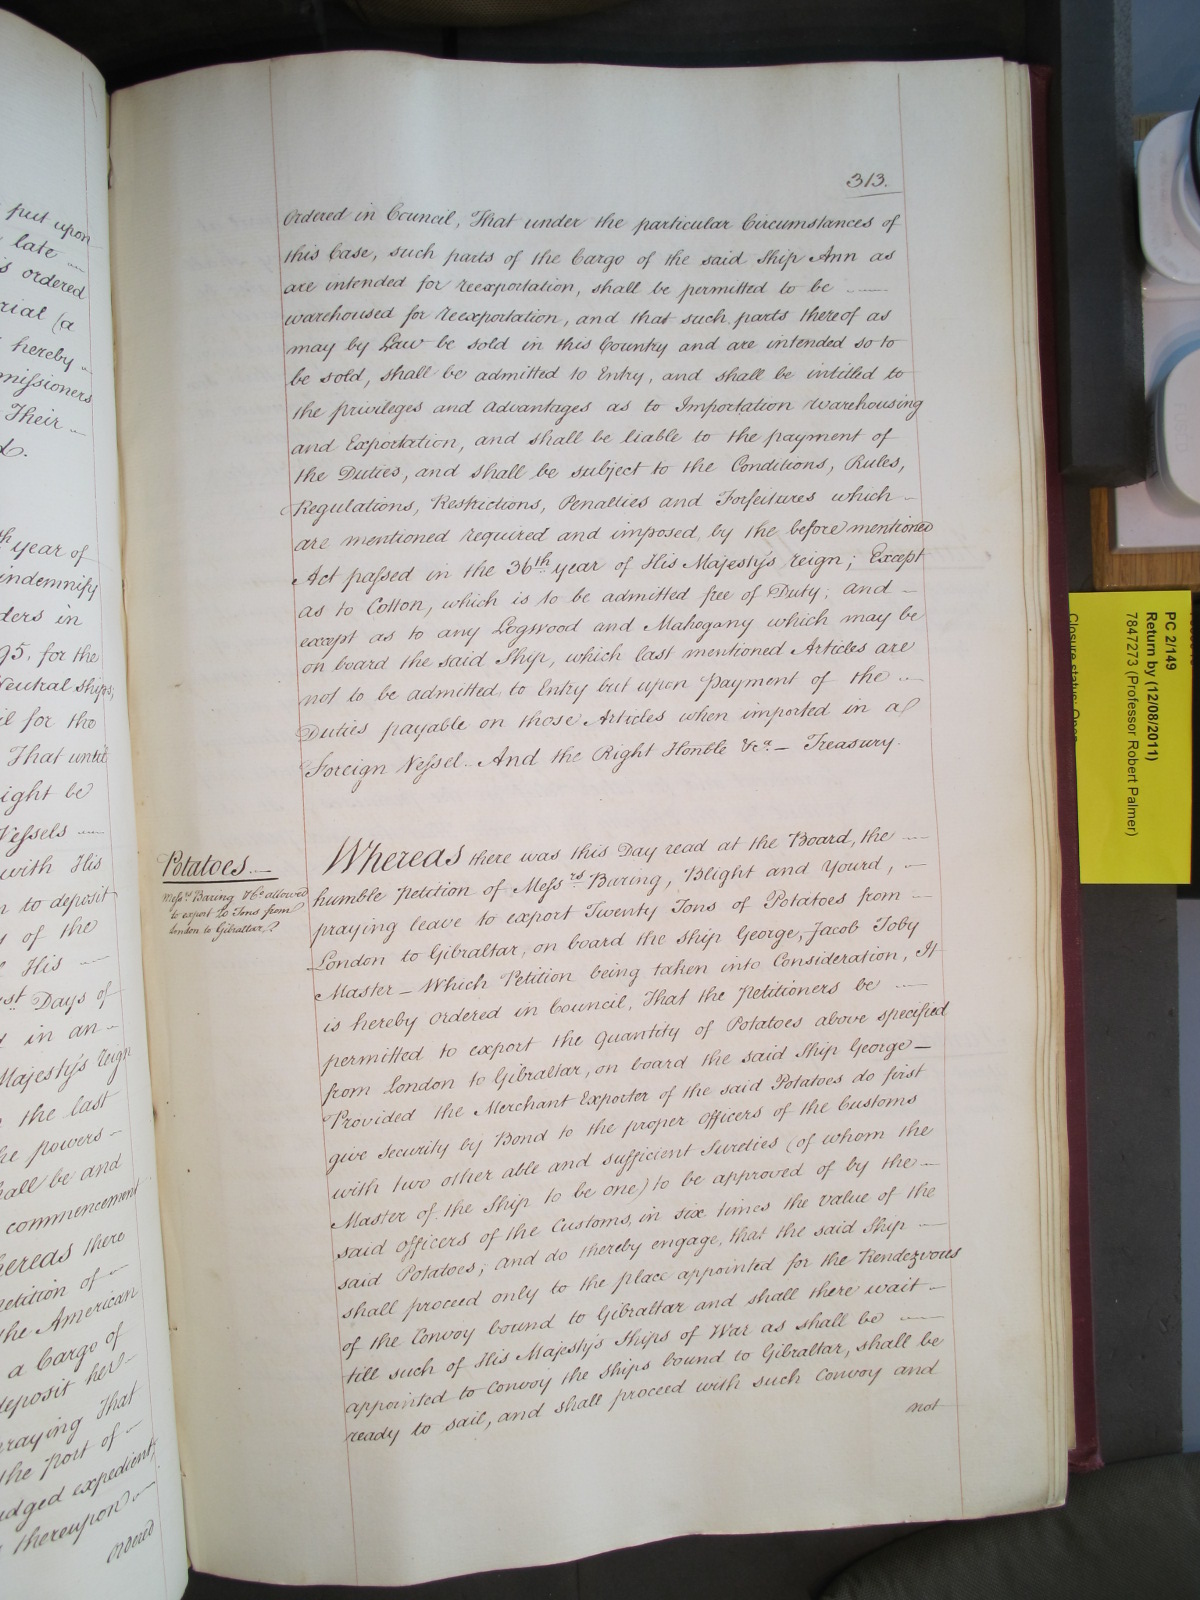 put upon
late
s ordered
rial (a
hereby
missioners
Their
year of
indemnify
ders in
95, for the
Neutral ships,
il for the
That until
ight be
Vessels
with His
n to deposit
of the
His
st Days of
in an
Majesty's reign
the last
he powers
hall be and
commencement
hereas there
etition of
the American
a Cargo of
deposit her
raying That
the Port of
udged expedient,
thereupon
ordered
313.
Ordered in Council, That under the particular Circumstances of
this Case, such parts of the Cargo of the said Ship Ann as
are intended for reexportation, shall be permitted to be
warehoused for reexportation, and that such parts thereof as
may by Law be sold in this Country and are intended so to
be sold, shall be admitted to Entry, and shall be intitled to
the privileges and Advantages as to Importation Warehousing
and Exportation, and shall be liable to the payment of
the Duties, and shall be subject to the Conditions, Rules,
Regulations, Restrictions, Penalties and Forfeitures which
are mentioned required and imposed by the before mentioned
Act passed in the 36th year of His Majesty's reign; Except
as to Cotton, which is to be admitted free of Duty; and
except as to any Logwood and Mahogany which may be
on board the said Ship, which last mentioned Articles are
not to be admitted to Entry but upon Payment of the
Duties payable on those Articles when imported in a
Foreign Vessel. And the Right Honble &ca. Treasury.
Potatoes
Messrs Baring &ca allowed
to export 20 Tons from
London to Gibraltar
Whereas there was this Day read at the Board, the
humble Petition of Messrs Baring, Blight and Yourd,
praying leave to export Twenty Tons of Potatoes from
London to Gibraltar, on board the Ship George, Jacob Toby
Master — Which Petition being taken into Consideration, It
is hereby Ordered in Council, That the Petitioners be
permitted to export the Quantity of Potatoes above specified
from London to Gibraltar, on board the said Ship George —
Provided the Merchant Exporter of the said Potatoes do first
give Security by Bond to the proper Officers of the Customs
with two other able and sufficient Sureties (of whom the
Master of the Ship to be one) to be approved of by the
said Officers of the Customs, in six times the value of the
said Potatoes; and do thereby engage, that the said Ship
shall proceed only to the place appointed for the Rendezvous
of the Convoy bound to Gibraltar and shall there wait
till such of His Majesty's Ships of War as shall be
appointed to Convoy the Ships bound to Gibraltar, shall be
ready to sail, and shall proceed with such Convoy and
not
PC 2/149
Return by (12/08/2011)
7847273 (Professor Robert Palmer)
Closure status: Open